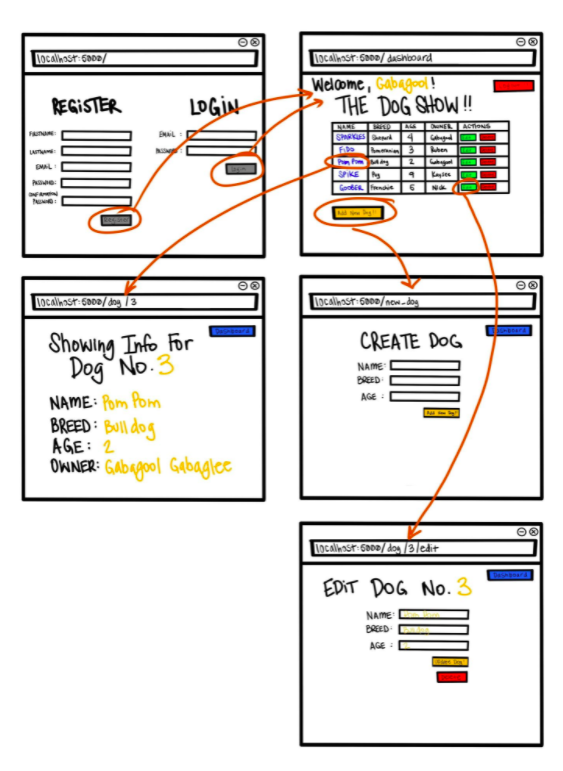 localhost:5000/
REGISTER
FIRSTNAME:
LASTNAME:
EMAIL:
PASSWORD:
CONFIRMATION
PASSWORD:
LOGIN
EMAIL :
PASSWORD:
localhost:5000/dashboard
Welcome, Gabagool!
THE DOG SHOW!!
NAME BREED AGE OWNER ACTIONS
SPARKLES Shepard 4 Gabagool
FIDO Pomeranian 3 Ruben
Pom Pom Bull dog 2 Gabagool
SPIKE Pug 9 Kaylee
GOOBER Frenchie 5 Nick
Add New Dog!!
localhost:5000/dog/3
Dashboard
Showing Info For
Dog No. 3
NAME: Pom Pom
BREED: Bull dog
AGE: 2
OWNER: Gabagool Gabaglee
localhost:5000/new_dog
Dashboard
CREATE DOG
NAME:
BREED:
AGE :
Add New Dog!
localhost:5000/dog/3/edit
Dashboard
EDIT DOG No. 3
NAME: Pom Pom
BREED: Bull dog
AGE : 2